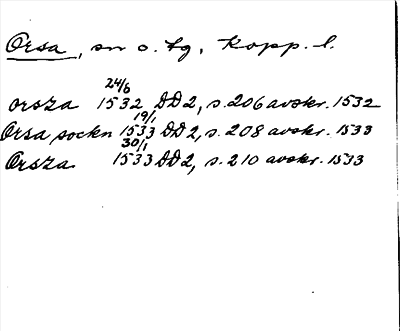 Orsa, sn o. tg, Kopp. l.
orsza 24/6 1532 DD2, s. 206 avskr. 1532
Orsa sockn 19/1 1533 DD2, s. 208 avskr. 1533
Orsza 30/1 1533 DD2, s. 210 avskr. 1533